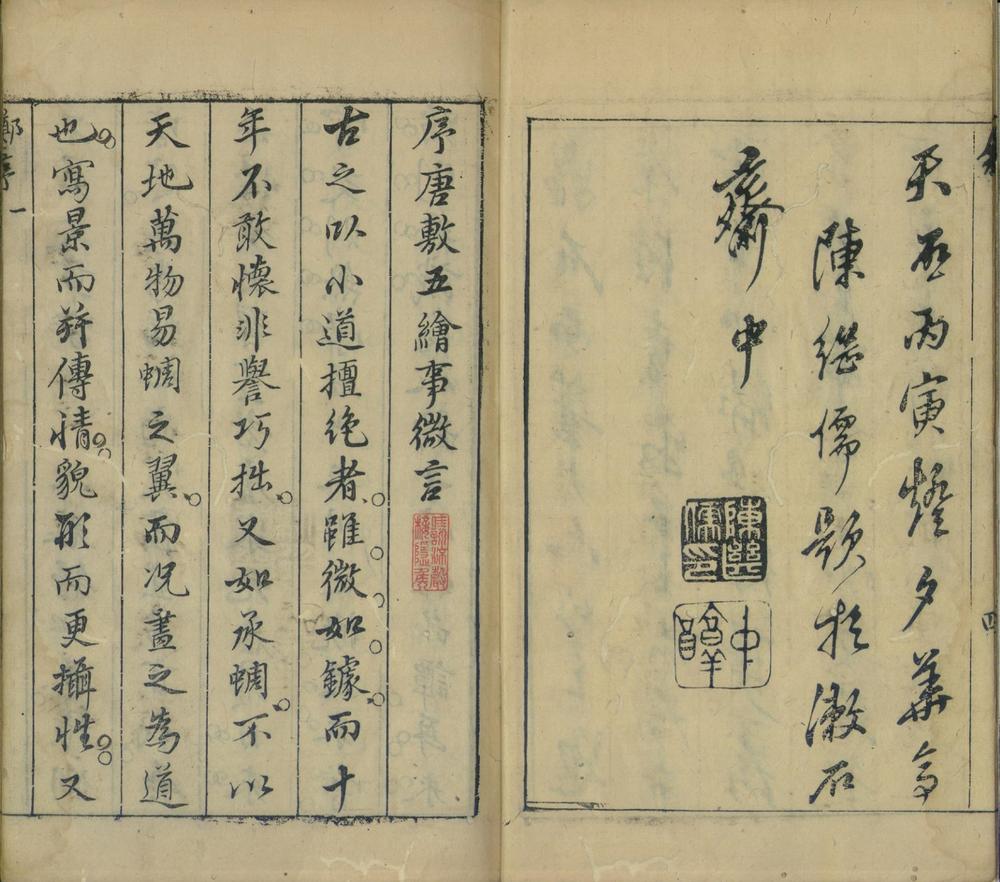 天啟丙寅燈夕華亭
陳繼儒題於漱石
齋中
四
陳繼儒印
序唐敷五繪事微言
古之以小道擅絶者雖微如鐻而十
年不敢懷非譽巧拙又如承蜩不以
天地萬物易蜩之翼而况畫之為道
也寫景而并傳情貌形而更攝性又
鄭序 一